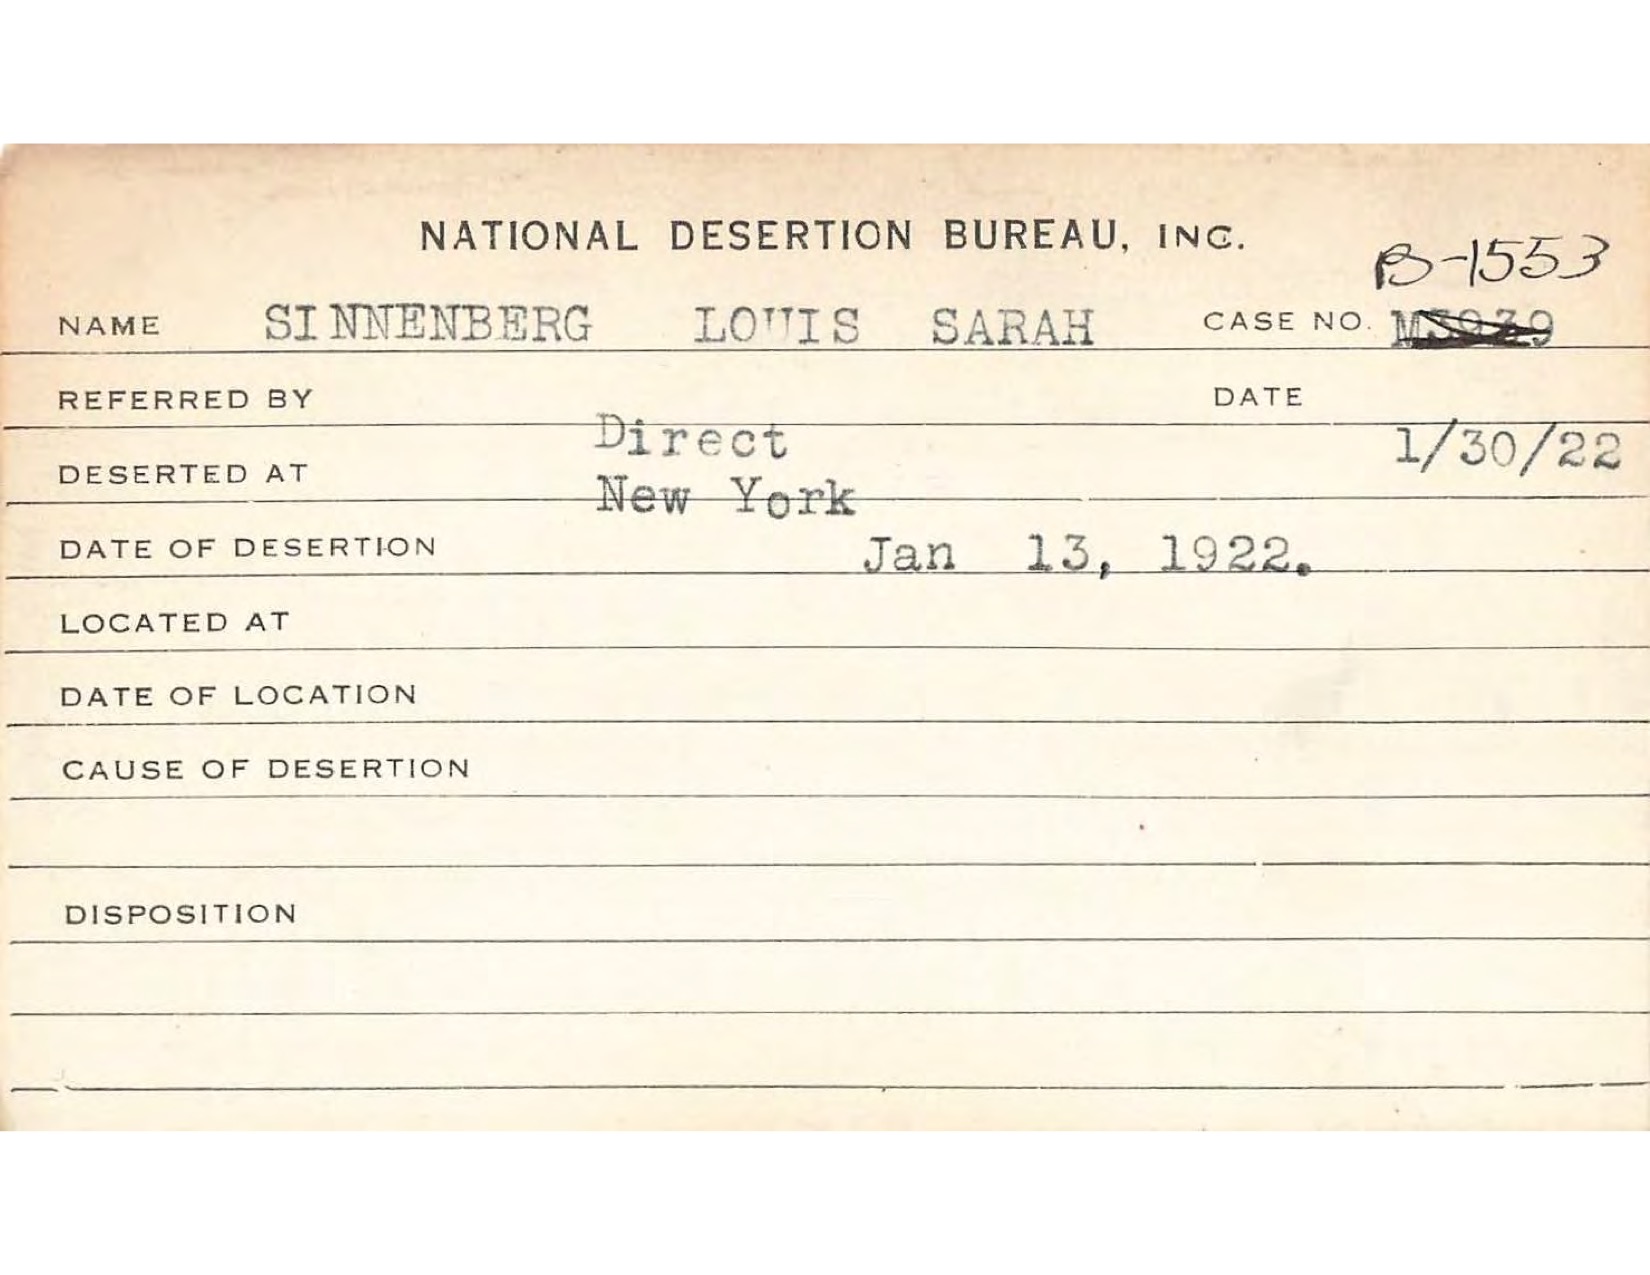 NATIONAL DESERTION BUREAU, INC.
B-1553
NAME SINNENBERG LOUIS SARAH CASE NO.
REFERRED BY DATE
Direct 1/30/22
DESERTED AT
New York
DATE OF DESERTION Jan 13, 1922.
LOCATED AT
DATE OF LOCATION
CAUSE OF DESERTION
DISPOSITION